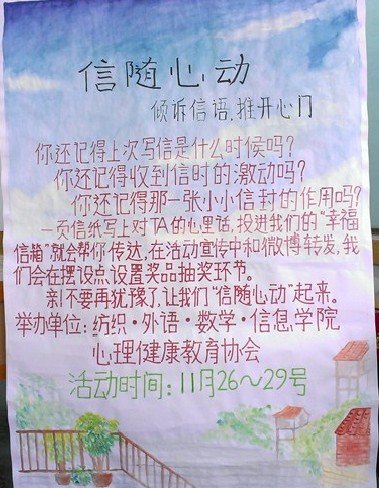 信随心动
倾诉信语.推开心门
你还记得上次写信是什么时候吗?
你还记得收到信时的激动吗?
你还记得那一张小小信封的作用吗?
一页信纸写上对TA的心里话,投进我们的“幸福
信箱”就会帮你传达,在活动宣传中和微博转发,我
们会在摆设点设置奖品抽奖环节。
亲!不要再犹豫了,让我们“信随心动”起来。
举办单位:纺织·外语·数学·信息学院
心理健康教育协会
活动时间:11月26~29号